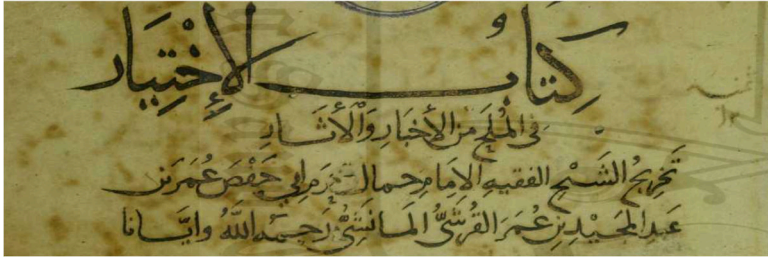 كِتَابُ الإِخْتِيَار
فِى الْمُلَحِ مِنَ الأَخْبَارِ وَالأَثَارِ
تَخْرِيجُ الشَّيْخِ الفقيهِ الإِمَامِ جمال اَبِي حَفْصَ عُمَرَ بْنِ
عَبدِ المَجِيْدِ بْنِ عُمَرَ القُرَشِىُّ المَيَانَشِىُّ رَحِمَهُ اللهُ وايَّانا